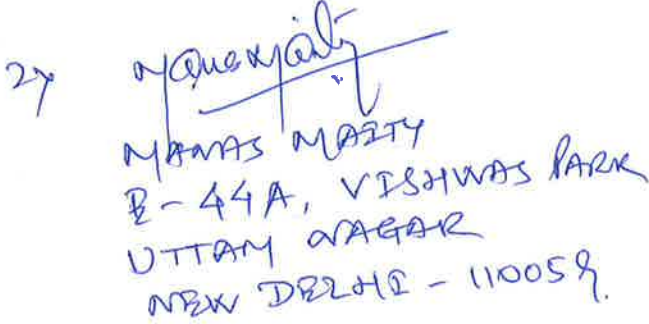 2)
MANAS MAITY
E-44A, VISHWAS PARK
UTTAM NAGAR
NEW DELHI - 110059.